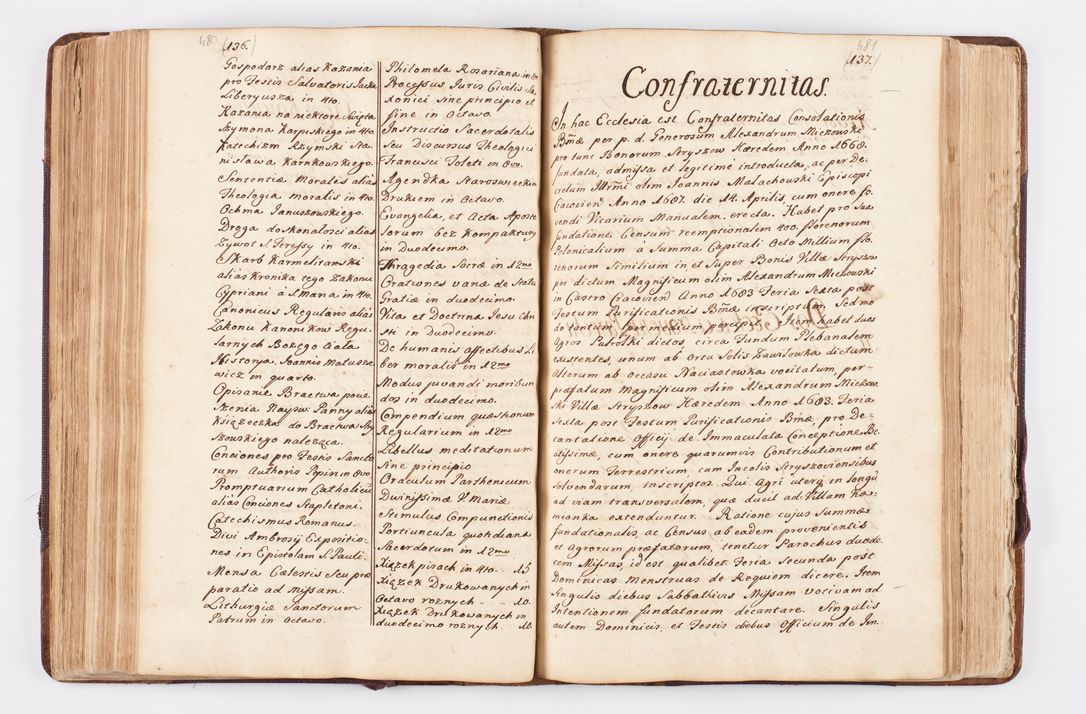 480 (136.)
Gospodarz alias Kazania
pro Festis Salvatoris Jacka
Liberyusza in 4to.
Kazania na niektore Swięta
Szymona Karpiskiego in 4to.
Katechizm Rzymski Sta-
nisława Karnkowskiego.
Sententiæ Morales alias
Theologia moralis in 4to.
Ochma Januszowskiego.
Droga doskonałosci alias
Zywot S. Teressy in 4to.
Skarb Karmelitanski
alias Kronika tego Zakonu
Cypriani à S. Maria in 4to.
Canonicus Regularis alias
Zakonu Kanonikow Regu-
larnych Bozego Ciała
Historya. Joannis Matusze
wicz in quarto.
Opisanie Bractwa powie
Szenia Nayśw. Panny alias
Xiązeczka do Bractwa
Szowskiego naleząca.
Conciones pro Festis Sancto
rum Authoris Pepin in 8vo.
Promptuarium Catholicū
alias Conciones Stapletoni.
Catechismus Romanus.
Divi Ambrosij Expositio-
nes in Epistolam S. Pauli.
Mensa Cælestis seu præ
paratio ad Missam.
Lithurgiæ Sanctorum
Patrum in Octavo.
Philomela Rosariana in
Processus Juris Civilis Sa
xonici sine principio et
fine in Octavo.
Instructio Sacerdotalis
Seu Discursus Theologici
Francisci Toleti in 8vo.
Agendka Staroswieckim
Drukiem in Octavo.
Evangelia, et Acta Aposto
lorum bez Kompaktury
in Duodecimo.
Thragedia Sacræ in 12mo
Orationes vanæ de Statu
Gratiæ in duodecimo.
Vita et Doctrina Jesu Chri
sti in Duodecimo.
De humanis affectibus Li
ber moralis in 12mo
Modus juvandi moribun
dos in duodecimo.
Compendium quæstionum
Regularium in 12mo
Libellus meditationum
sine principio
Oraculum Parthenicum
Divinissimæ V. Mariæ
Stimulus Compunctionis
Portiuncula quotidiana
Sacerdotum in 12mo
Xiązek pisach in 4to. - 15
Xiązek Drukowanych in
Octavo roznych - - 10.
Xiązek Drukowanych in
duodecimo roznych. 10.
481
(137.)
Confraternitas.
In hac Ecclesia est Confraternitas Consolationis
Bmæ per p. d. Generosum Alexandrum Mieżowski
pro tunc Bonorum Stryszow Hæredem Anno 1668.
fundata, admissa et legitimè introducta, ac per De:
cretum Illrmi olim Joannis Małachowski Episcopi
Cracovien Anno 1687. die 14. Aprilis, cum onere fo,
vendi Vicarium Manualem, erecta. Habet pro sua
fundatione Censum reemptionalem 400. florenorum
Polonicalium à Summa Capitali Octo Millium flo,
renorum similium in et super Bonis Villæ Stryszow
per dictum Magnificum olim Alexandrum Mieżowski
in Castro Cracovien Anno 1683 Feria Sexta post
Festum Purificationis Bmæ inscriptam, Sed mo
do tantum per medium percipit. Item habet duos
Agros Petrolki dictos, circa Fundum Plebanalem
existentes, unum ab Ortu Solis Zawilowka dictum
Alterum ab occasu Naciastowka vocitatum, per-
præfatum Magnificum olim Alexandrum Mieżow,
ski Villæ Stryszow Hæredem Anno 1683. Feria
Sexta post Festum Purificationis Bmæ, pro De=
cantatione Officij de Immaculata Conceptione Be
atissimæ, cum onere quarumvis Contributionum et
onerum Terrestrium, cum Incolis Stryszoviensibus
solvendarum, inscriptos. Qui Agri uterq. in longū
ad viam transversalem, quæ ducit ad Villam Ka=
mionka extenduntur. Ratione cujus Summæ
fundationalis, ac Census ab eadem provenientis
et Agrorum præfatorum, tenetur Parochus duode
cem Missas, id est qualibet Feria Secunda post
Dominicas Menstruas de Requiem dicere. Item
Singulis diebus Sabbathivis Missam votivam ad
Intentionem fundatorum decantare. Singulis
autem Dominicis, et Festis diebus Officium de Im,